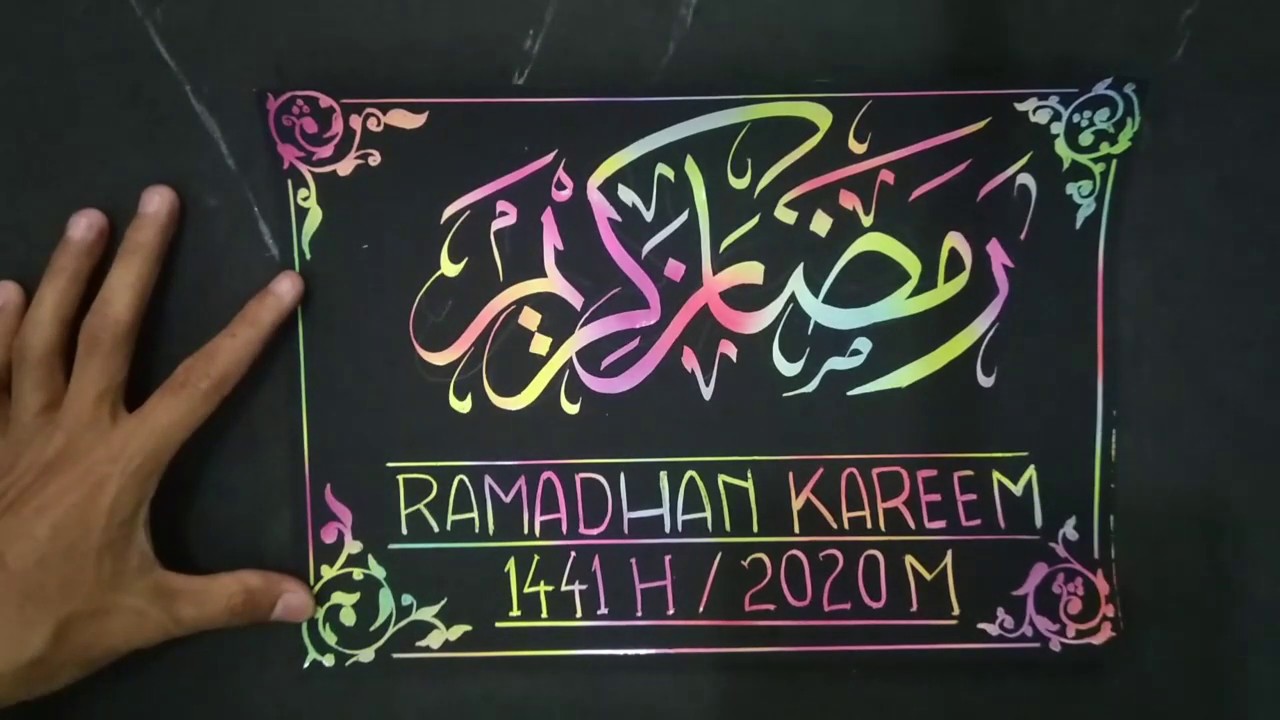 رمضان كريم
RAMADHAN KAREEM
1441 H / 2020 M